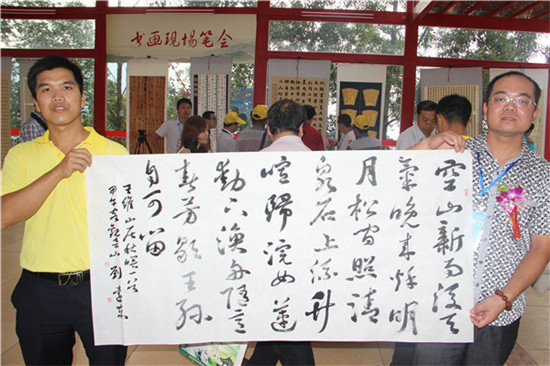 书画现场笔会
空山新雨後天
氣晚来秋明
月松间照清
泉石上流竹
喧歸浣女蓮
動下渔舟随意
春芳歇王孙
自可留
王维山居秋暝一首
甲午 山 刘建东